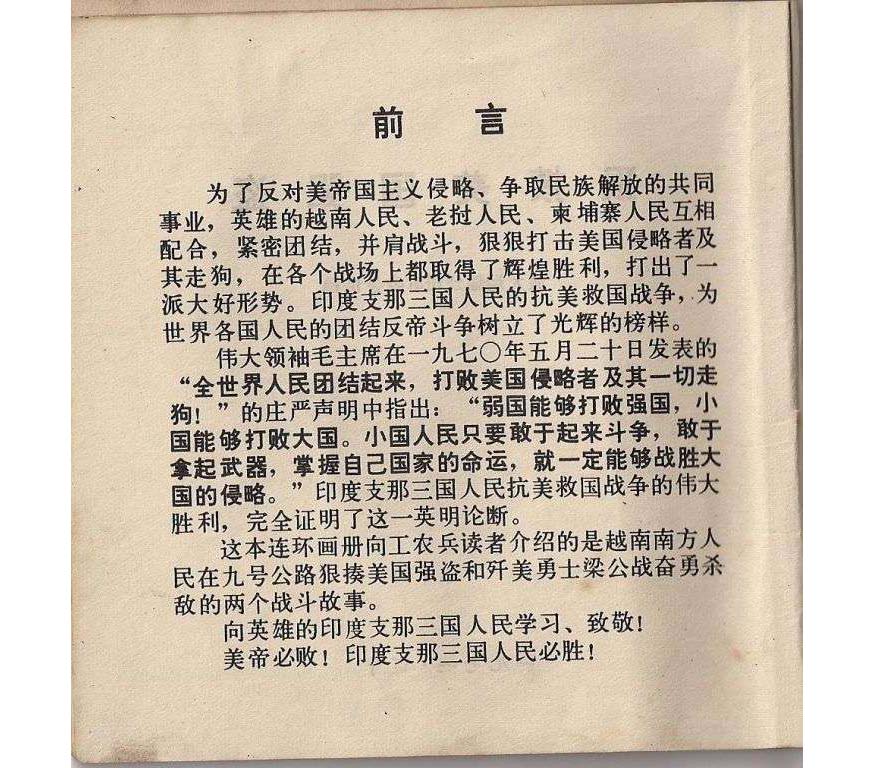 前 言
为了反对美帝国主义侵略、争取民族解放的共同
事业，英雄的越南人民、老挝人民、柬埔寨人民互相
配合，紧密团结，并肩战斗，狠狠打击美国侵略者及
其走狗，在各个战场上都取得了辉煌胜利，打出了一
派大好形势。印度支那三国人民的抗美救国战争，为
世界各国人民的团结反帝斗争树立了光辉的榜样。
伟大领袖毛主席在一九七〇年五月二十日发表的
“全世界人民团结起来，打败美国侵略者及其一切走
狗！”的庄严声明中指出：“弱国能够打败强国，小
国能够打败大国。小国人民只要敢于起来斗争，敢于
拿起武器，掌握自己国家的命运，就一定能够战胜大
国的侵略。”印度支那三国人民抗美救国战争的伟大
胜利，完全证明了这一英明论断。
这本连环画册向工农兵读者介绍的是越南南方人
民在九号公路狠揍美国强盗和歼美勇士梁公战奋勇杀
敌的两个战斗故事。
向英雄的印度支那三国人民学习、致敬！
美帝必败！印度支那三国人民必胜！